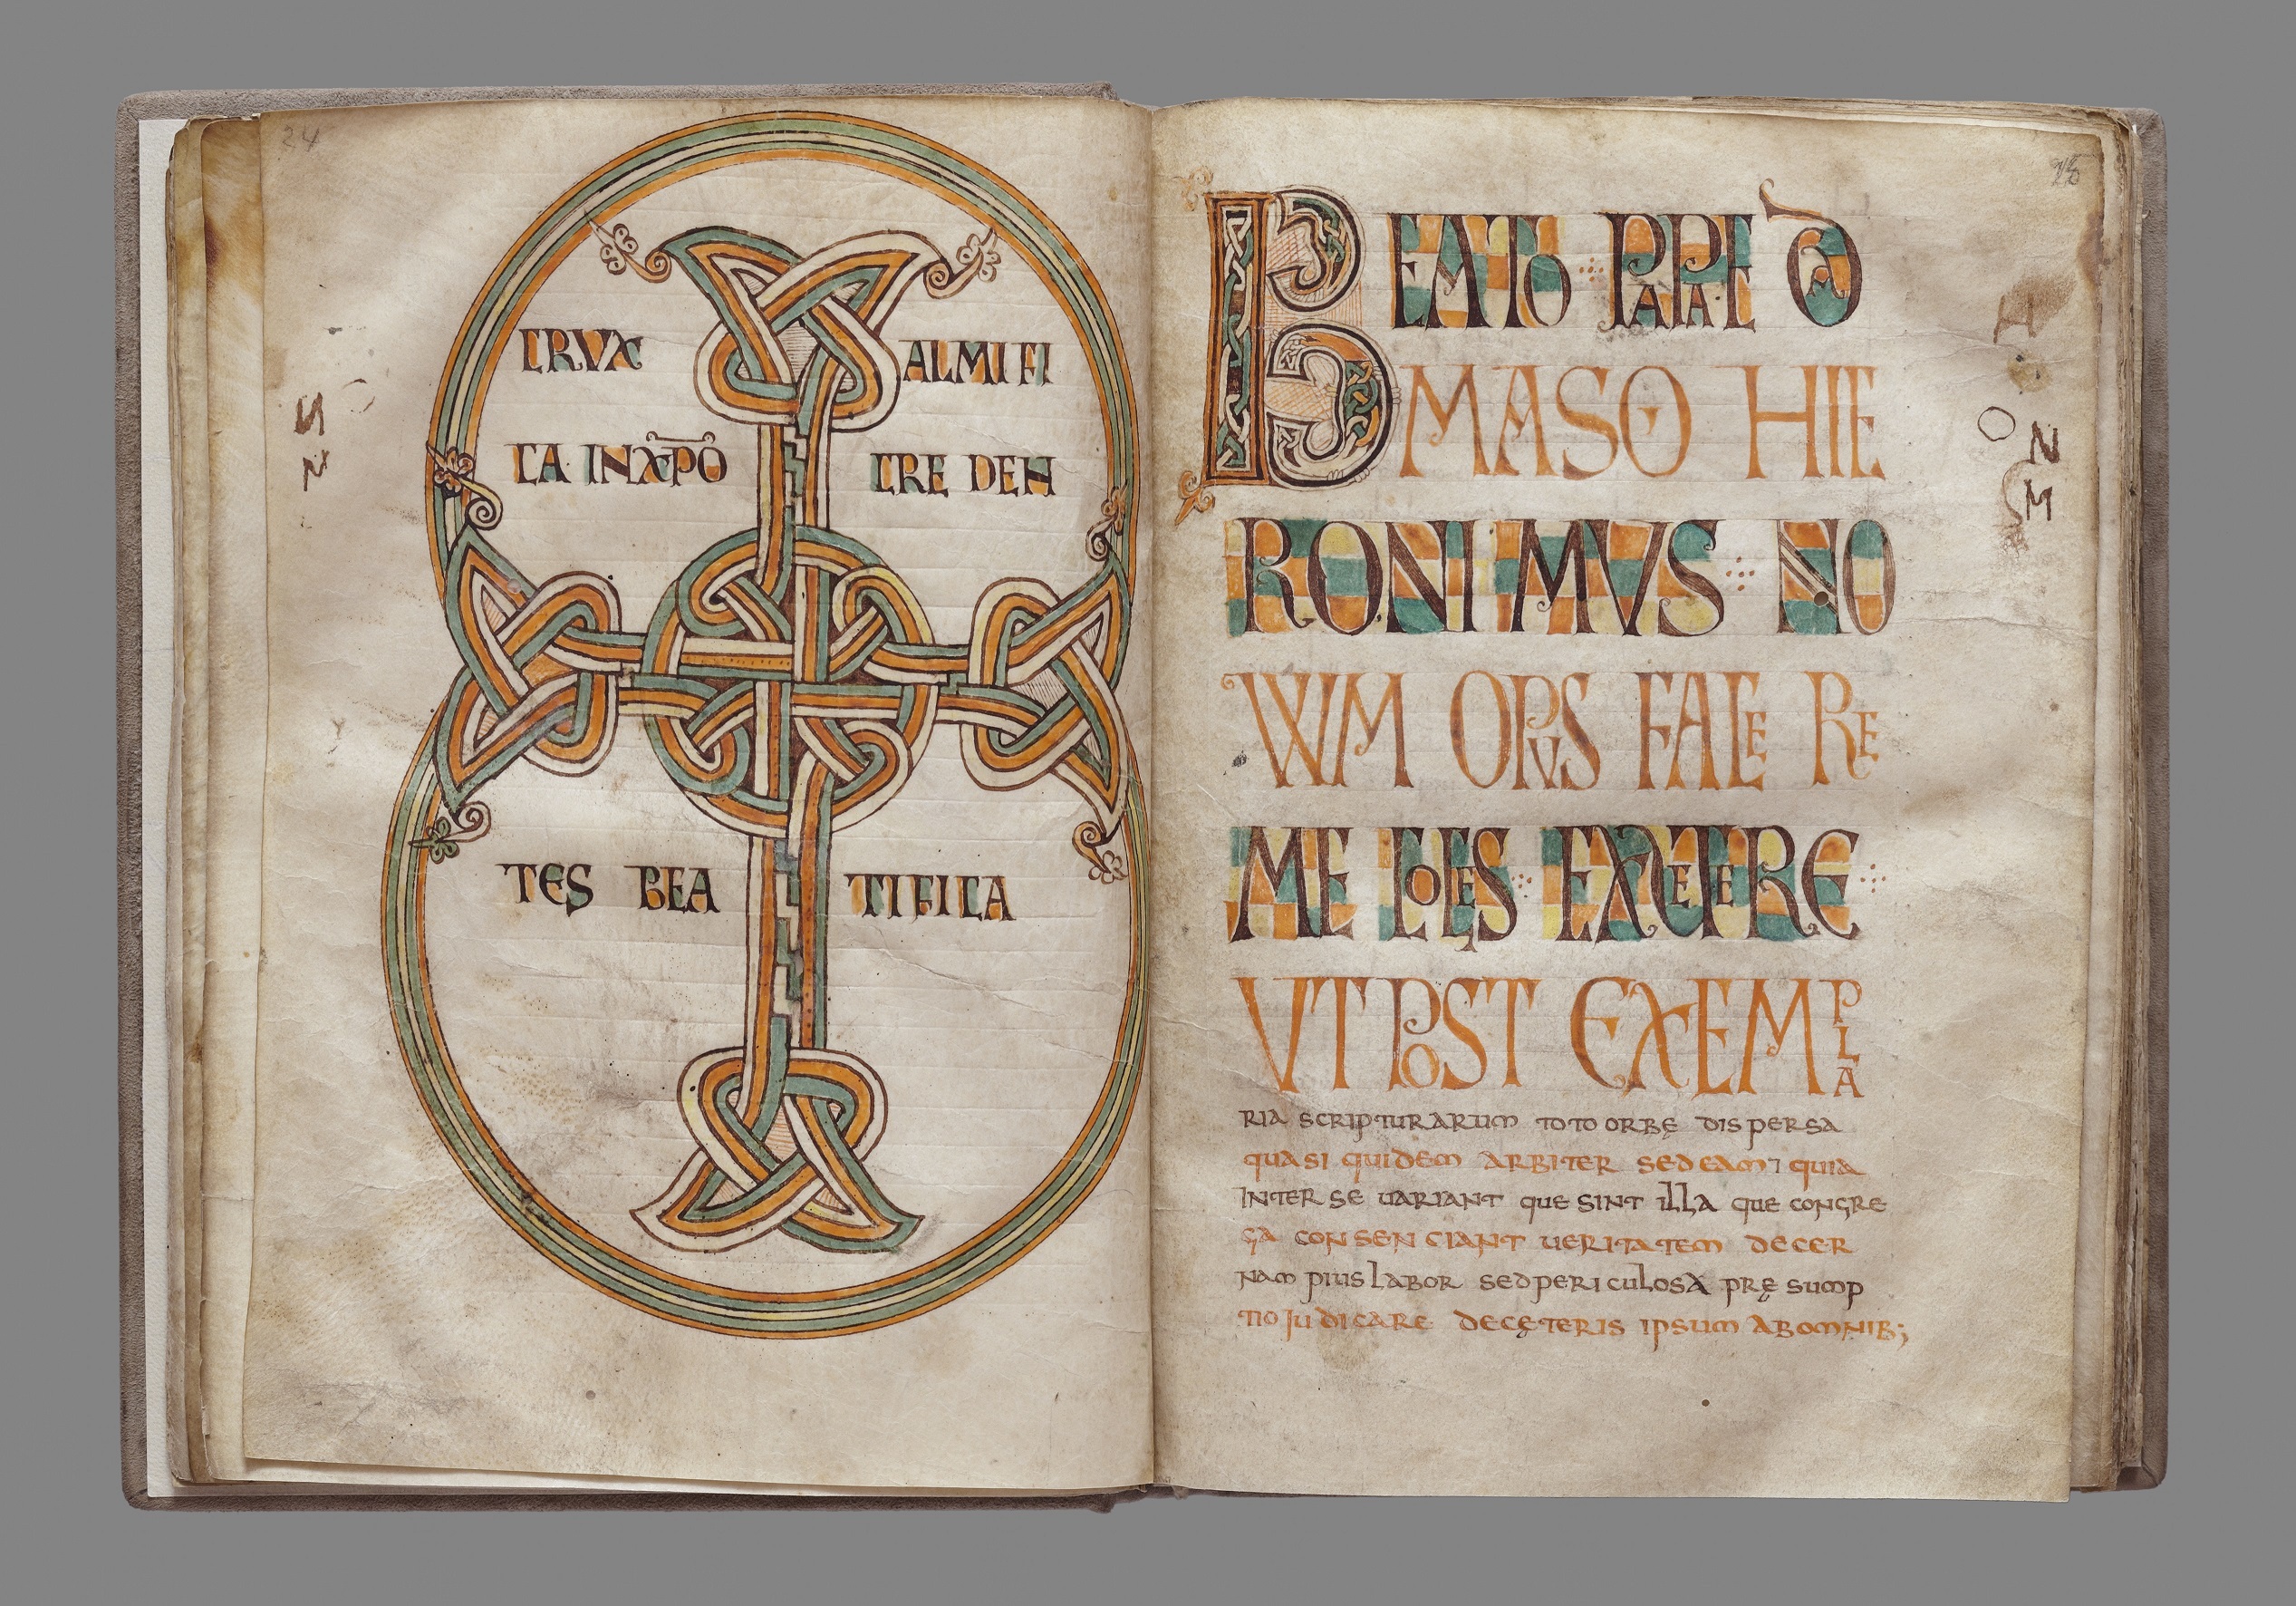 24
CRVX ALMIFI
CA IN XP̄O CREDEN
TES BEATIFICA
N
N
25
BEATO PAPAE DA
MASO HIE
RONIMVS NO
VVM OPVS FACE RE
ME COGES EX VETERE
VT POST EXEMPLA
RIA SCRIPTURARUM TOTO ORBĘ DISPERSA
QUASI QUIDEM ARBITER SEDEAM ⁊ QUIA
INTER SE UARIANT QUE SINT ILLA QUE CONGRE
GA CONSENCIANT UERITATEM DECER
NAM PIUS LABOR SED PERICULOSA PRĘSUMP
TIO JUDICARE DE CĘTERIS IPSUM AB OMNIB;
N
M